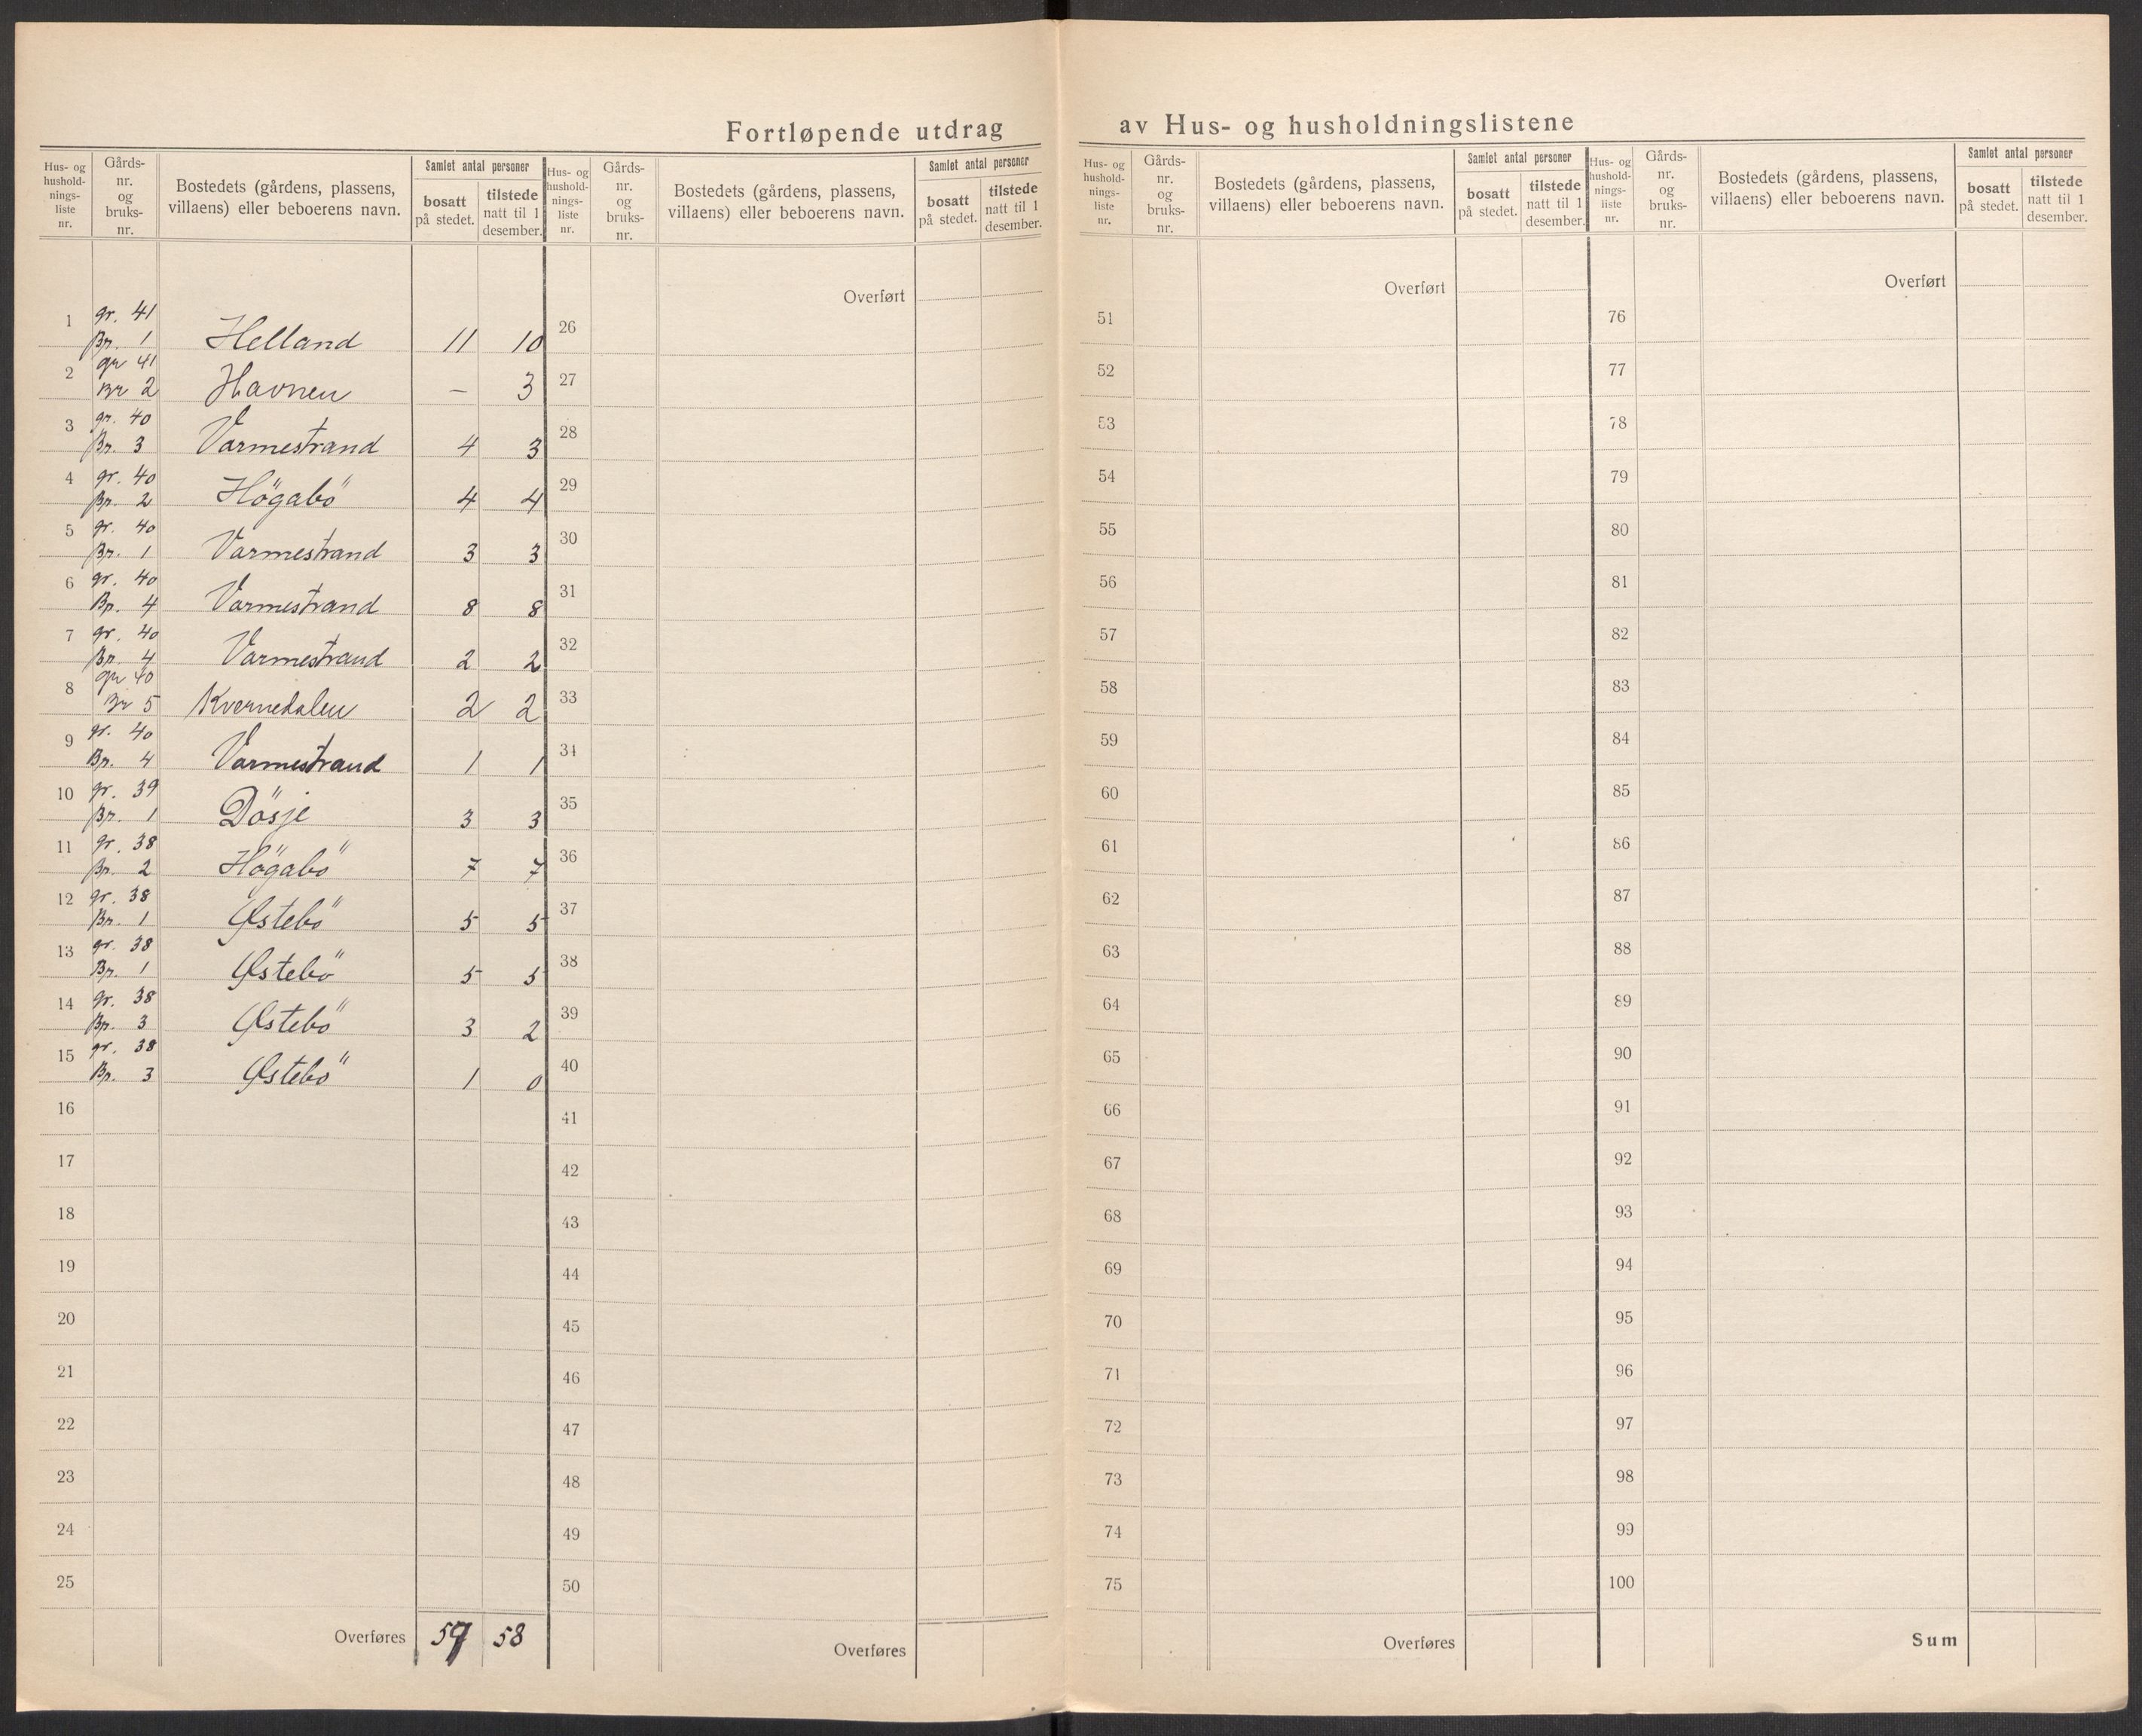 Fortløpende utdrag av Hus- og husholdningslistene
Hus- og hushold-nings-liste nr. Gårds-nr. og bruks-nr. Bostedets (gårdens, plassens, villaens) eller beboerens navn. Samlet antal personer bosatt på stedet. tilstede natt til 1 desember.
Hus- og hushold-nings-liste nr. Gårds-nr. og bruks-nr. Bostedets (gårdens, plassens, villaens) eller beboerens navn. Samlet antal personer bosatt på stedet. tilstede natt til 1 desember.
Hus- og hushold-nings-liste nr. Gårds-nr. og bruks-nr. Bostedets (gårdens, plassens, villaens) eller beboerens navn. Samlet antal personer bosatt på stedet. tilstede natt til 1 desember.
Hus- og hushold-nings-liste nr. Gårds-nr. og bruks-nr. Bostedets (gårdens, plassens, villaens) eller beboerens navn. Samlet antal personer bosatt på stedet. tilstede natt til 1 desember.
1 gr. 41 Br. 1 Helland 11 10
2 gr 41 Br 2 Havnen – 3
3 gr. 40 Br. 3 Varmestrand 4 3
4 gr. 40 Br. 2 Högabö 4 4
5 gr. 40 Br. 1 Varmestrand 3 3
6 gr. 40 Br. 4 Varmestrand 8 8
7 gr. 40 Br. 4 Varmestrand 2 2
8 gr 40 Br 5 Kvernedalen 2 2
9 gr. 40 Br. 4 Varmestrand 1 1
10 gr. 39 Br. 1 Dösje 3 3
11 gr. 38 Br. 2 Högabö 7 7
12 gr. 38 Br. 1 Østebö 5 5
13 gr. 38 Br. 1 Østebö 5 5
14 gr. 38 Br. 3 Østebö 3 2
15 gr. 38 Br. 3 Østebö 1 0
16
17
18
19
20
21
22
23
24
25
Overføres 59 58
Overført
26
27
28
29
30
31
32
33
34
35
36
37
38
39
40
41
42
43
44
45
46
47
48
49
50
Overføres
Overført
51
52
53
54
55
56
57
58
59
60
61
62
63
64
65
66
67
68
69
70
71
72
73
74
75
Overføres
Overført
76
77
78
79
80
81
82
83
84
85
86
87
88
89
90
91
92
93
94
95
96
97
98
99
100
Sum